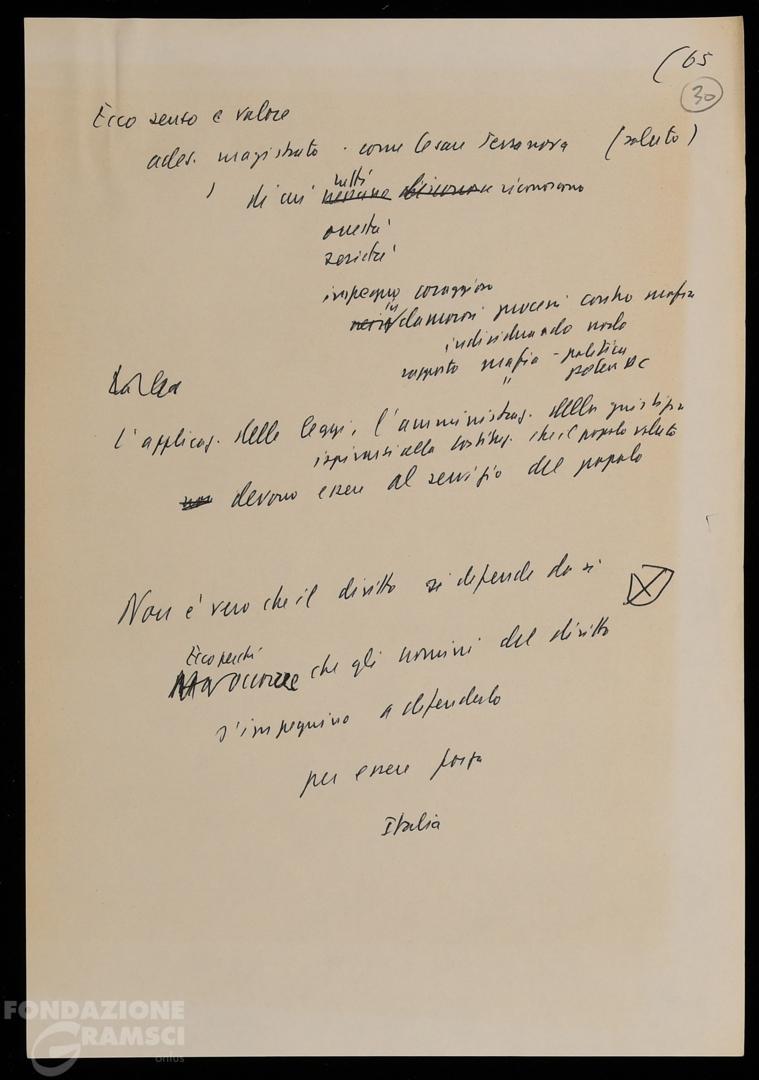 (65
30
Ecco senso e valore
ades. magistrato - come Cesare Terranova (saluto)
tutti
di cui nessuno disconosce riconoscono
onestà
serietà
impegno coraggioso
in
clamorosi processi contro mafia
individuando nodo
rapporto mafia - politica
" poteri DC
L'applicaz. delle leggi, l'amministraz. della giustizia
ispirarsi alla Costituz. che il popolo voluto
non devono essere al servizio del popolo
Non è vero che il diritto si difende da sì
Ecco perché
Ma occorre che gli uomini del diritto
s'impegnino a difenderlo
per essere forza
Italia
FONDAZIONE
GRAMSCI
onlus